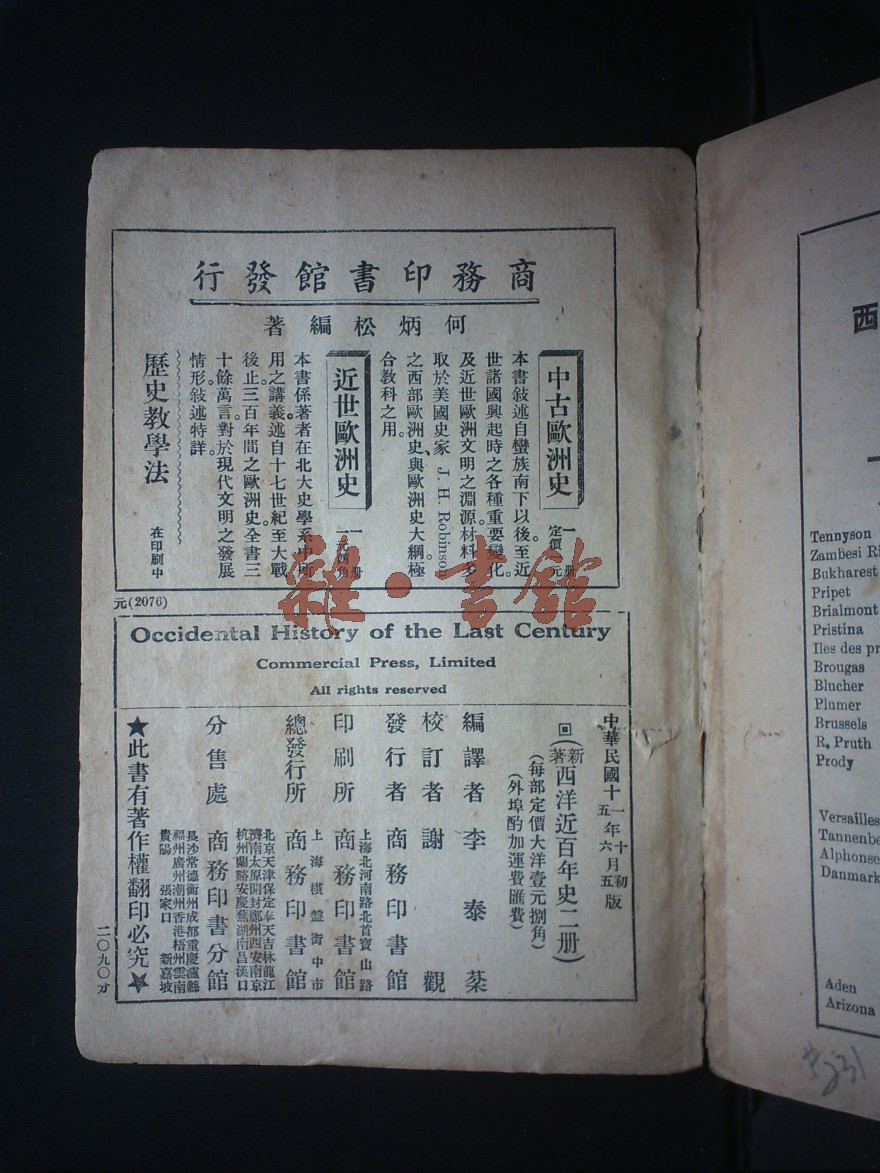 商務印書館發行
何炳松編著
中古歐洲史
一册
定價一元
本書敍述自蠻族南下以後。至近
世諸國興起時之各種重要變化。
及近世歐洲文明之淵源。材料多
取於美國史家 J. H. Robinson
之西部歐洲史、與歐洲史大綱。極
合教科之用。
近世歐洲史
一册
一元四角
本書係著者在北大史學系中所
用之講義。述自十七世紀至大戰
後止。三百年間之歐洲史。全書三
十餘萬言。對於現代文明之發展
情形敍述特詳。
歷史教學法
在印刷中
元(2076)
Occidental History of the Last Century
Commercial Press, Limited
All rights reserved
中華民國十一年十月初版
五六五
回(新著西洋近百年史二册)
(每部定價大洋壹元捌角)
(外埠酌加運費匯費)
編譯者 李泰棻
校訂者 謝觀
發行者 商務印書館
印刷所 上海北河南路北首寶山路 商務印書館
總發行所 上海棋盤街中市 商務印書館
分售處 商務印書分館
北京天津保定奉天吉林龍江
濟南太原開封鄭州西安南京
杭州蘭谿安慶蕪湖南昌漢口
長沙常德衡州成都重慶瀘縣
福州廣州潮州香港梧州雲南
貴陽 張家口 新嘉坡
★此書有著作權翻印必究★
二〇九〇分
雜·書館
西
Tennyson
Zambesi Ri
Bukharest
Pripet
Brialmont
Pristina
Iles des pr
Brougas
Blucher
Plumer
Brussels
R. Pruth
Prody
Versailles
Tannenbe
Alphonse
Danmark
Aden
Arizona